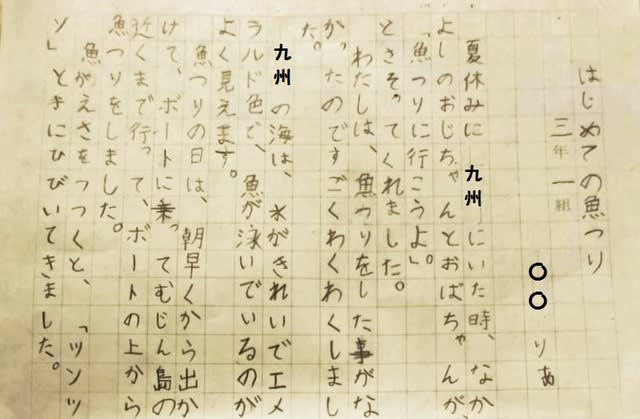 はじめての魚つり
三年一組
○○りあ
夏休みに九州にいた時、なか
よしのおじちゃんとおばちゃんが、
「魚つりに行こうよ」。
とさそってくれました。
わたしは、魚つりをした事がな
かったのですごくわくわくしまし
た。
九州の海は、水がきれいでエメ
ラルド色で、魚が泳いでいるのが
よく見えます。
魚つりの日は、朝早くから出か
けて、ボートに乗ってむじん島の
近くまで行って、ボートの上から
魚つりをしました。
魚がえさをつつくと、「ツンツ
ン」ときにひびいてきました。